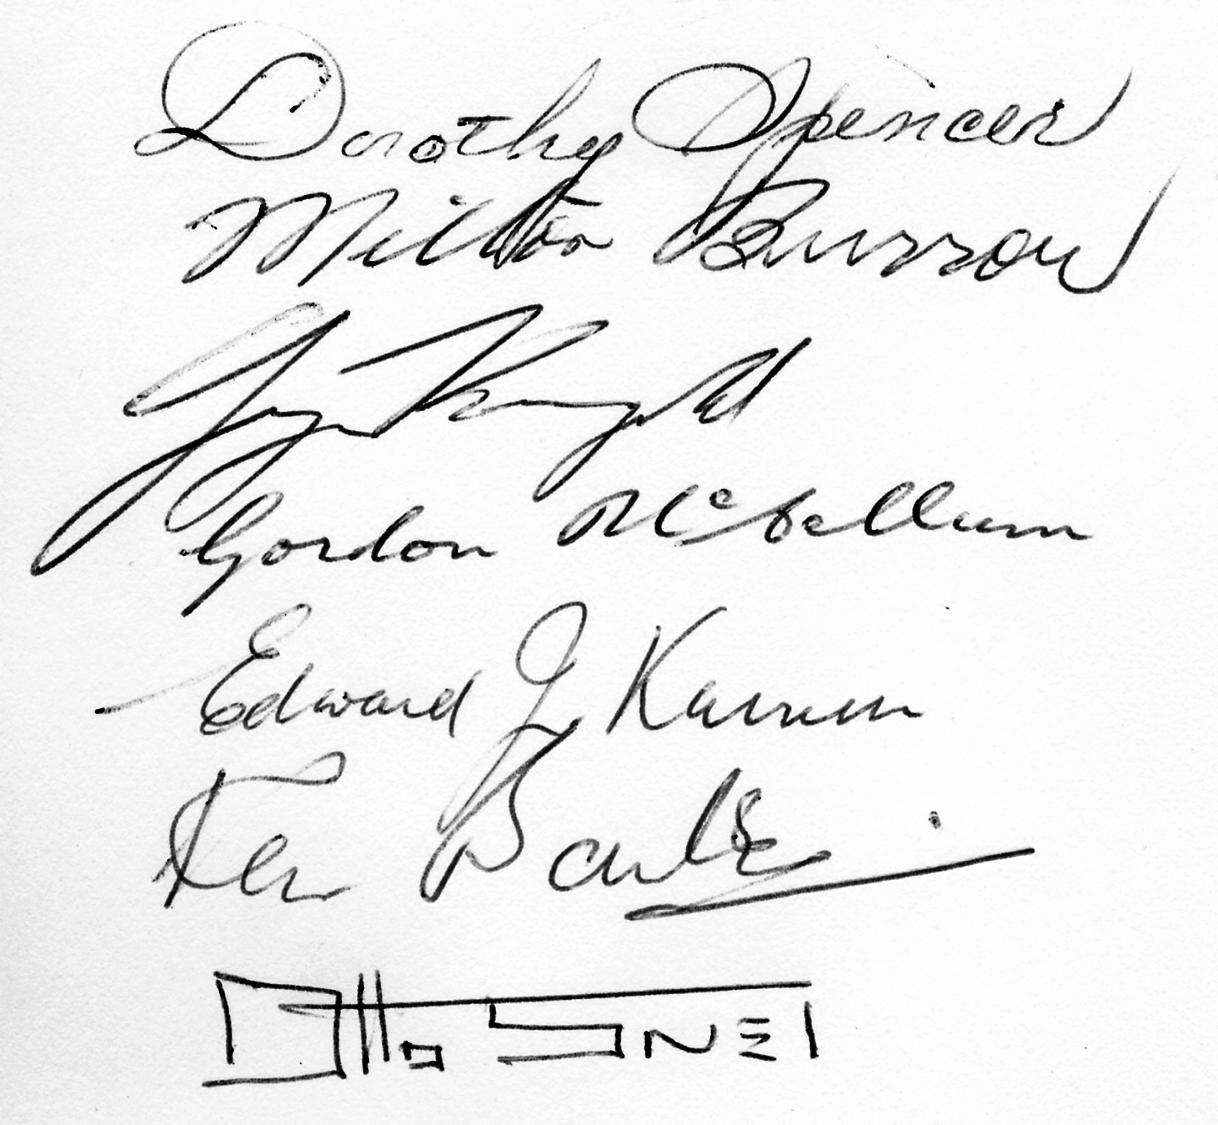 Dorothy Spencer
Milton Burrow
Gordon McCallum
Edward J
Ken Barker
Otto Snel